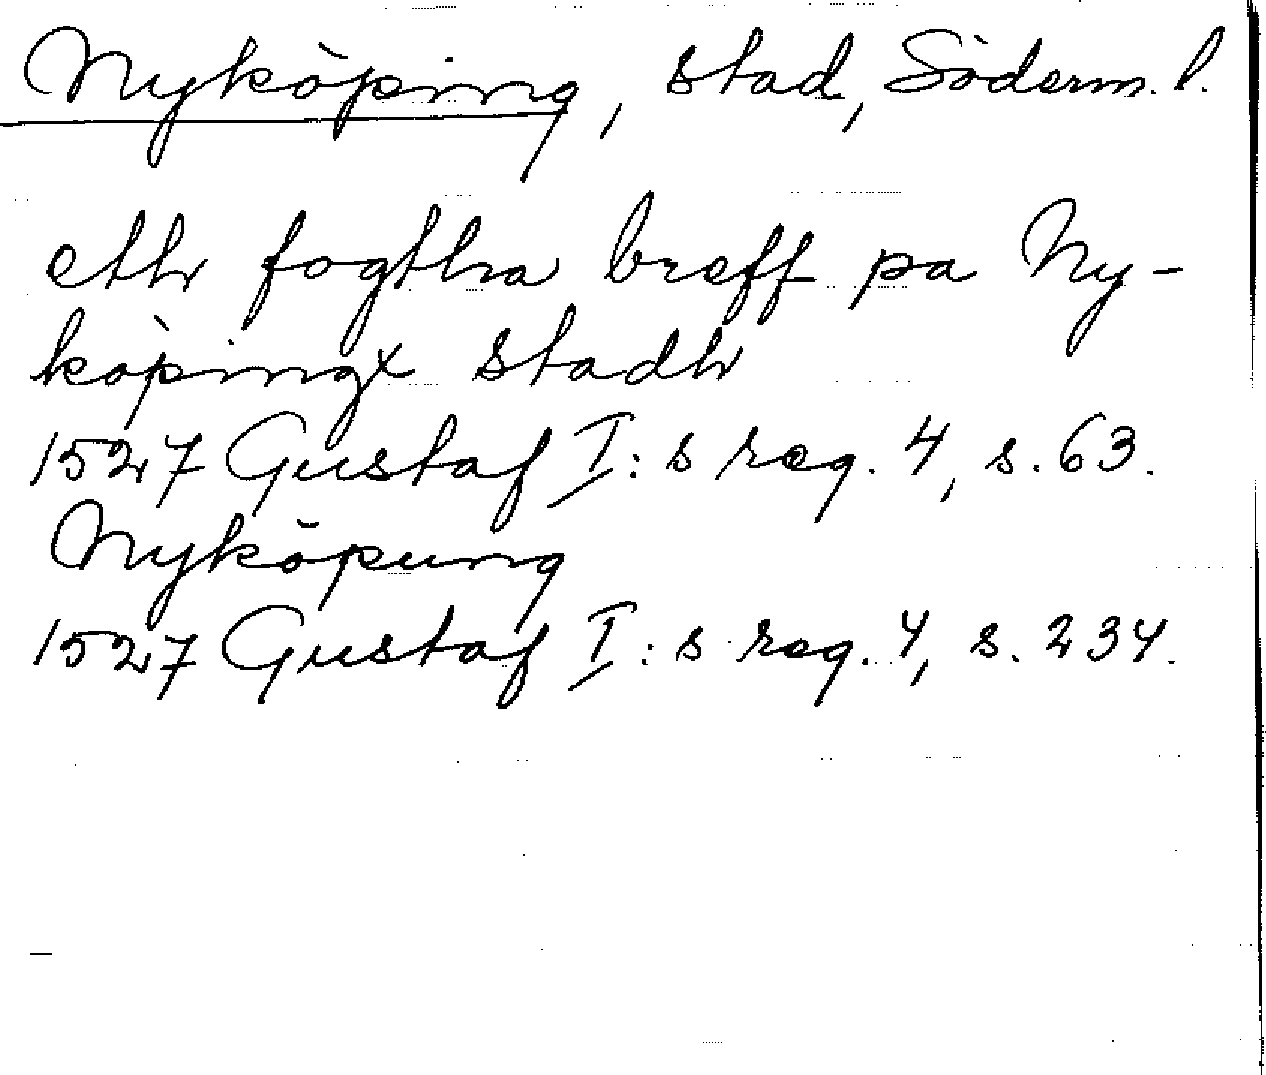 Nyköping, stad, Söderm. l.
etth fogthra breff pa Ny-
köpingx stadh
1527 Gustaf I:s reg. 4, s. 63.
Nyköpung
1527 Gustaf I:s reg. 4, s. 234.